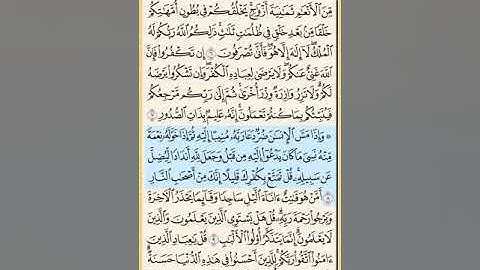 مِّنَ ٱلۡأَنۡعَٰمِ ثَمَٰنِيَةَ أَزۡوَٰجٖۚ يَخۡلُقُكُمۡ فِي بُطُونِ أُمَّهَٰتِكُمۡ
خَلۡقٗا مِّنۢ بَعۡدِ خَلۡقٖ فِي ظُلُمَٰتٖ ثَلَٰثٖۚ ذَٰلِكُمُ ٱللَّهُ رَبُّكُمۡ لَهُ
ٱلۡمُلۡكُۖ لَآ إِلَٰهَ إِلَّا هُوَۖ فَأَنَّىٰ تُصۡرَفُونَ ٦ إِن تَكۡفُرُواْ فَإِنَّ
ٱللَّهَ غَنِيٌّ عَنكُمۡۖ وَلَا يَرۡضَىٰ لِعِبَادِهِ ٱلۡكُفۡرَۖ وَإِن تَشۡكُرُواْ يَرۡضَهُ
لَكُمۡۗ وَلَا تَزِرُ وَازِرَةٞ وِزۡرَ أُخۡرَىٰۚ ثُمَّ إِلَىٰ رَبِّكُم مَّرۡجِعُكُمۡ
فَيُنَبِّئُكُم بِمَا كُنتُمۡ تَعۡمَلُونَۚ إِنَّهُۥ عَلِيمُۢ بِذَاتِ ٱلصُّدُورِ ٧
۞ وَإِذَا مَسَّ ٱلۡإِنسَٰنَ ضُرّٞ دَعَا رَبَّهُۥ مُنِيبًا إِلَيۡهِ ثُمَّ إِذَا خَوَّلَهُۥ نِعۡمَةٗ
مِّنۡهُ نَسِيَ مَا كَانَ يَدۡعُوٓاْ إِلَيۡهِ مِن قَبۡلُ وَجَعَلَ لِلَّهِ أَندَادٗا لِّيُضِلَّ
عَن سَبِيلِهِۦۚ قُلۡ تَمَتَّعۡ بِكُفۡرِكَ قَلِيلًا إِنَّكَ مِنۡ أَصۡحَٰبِ ٱلنَّارِ
٨ أَمَّنۡ هُوَ قَٰنِتٌ ءَانَآءَ ٱلَّيۡلِ سَاجِدٗا وَقَآئِمٗا يَحۡذَرُ ٱلۡأٓخِرَةَ
وَيَرۡجُواْ رَحۡمَةَ رَبِّهِۦۗ قُلۡ هَلۡ يَسۡتَوِي ٱلَّذِينَ يَعۡلَمُونَ وَٱلَّذِينَ
لَا يَعۡلَمُونَۗ إِنَّمَا يَتَذَكَّرُ أُوْلُواْ ٱلۡأَلۡبَٰبِ ٩ قُلۡ يَٰعِبَادِ ٱلَّذِينَ
ءَامَنُواْ ٱتَّقُواْ رَبَّكُمۡۚ لِلَّذِينَ أَحۡسَنُواْ فِي هَٰذِهِ ٱلدُّنۡيَا حَسَنَةٞۗ